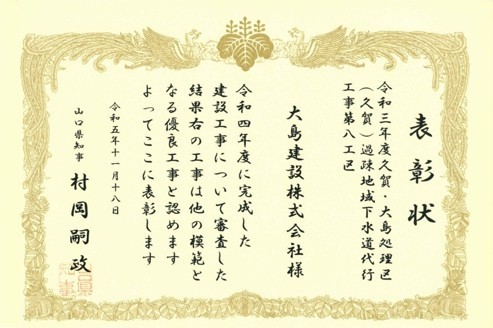 表彰状
令和三年度久賀・大島処理区
（久賀）過疎地域下水道代行
工事第八工区
大島建設株式会社様
令和四年度に完成した
建設工事について審査した
結果右の工事は他の模範と
なる優良工事と認めます
よってここに表彰します
令和五年十一月十八日
山口県知事 村岡嗣政